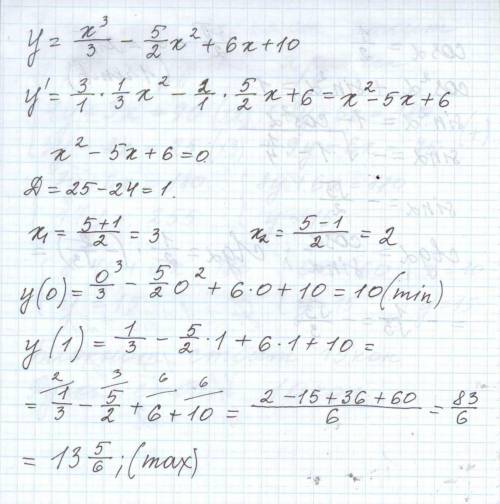 y = x³/3 - 5/2 x² + 6x + 10
y' = 3/1 · 1/3 x² - 2/1 · 5/2 x + 6 = x² - 5x + 6
x² - 5x + 6 = 0
Д = 25 - 24 = 1.
x₁ = (5+1)/2 = 3 x₂ = (5-1)/2 = 2
y(0) = 0³/3 - 5/2 0² + 6·0 + 10 = 10 (min)
y(1) = 1/3 - 5/2 · 1 + 6·1 + 10 =
= ²/1/3 - ³/5/2 + ⁶/6 + ⁶/10 = (2 - 15 + 36 + 60)/6 = 83/6
= 13 5/6; (max)